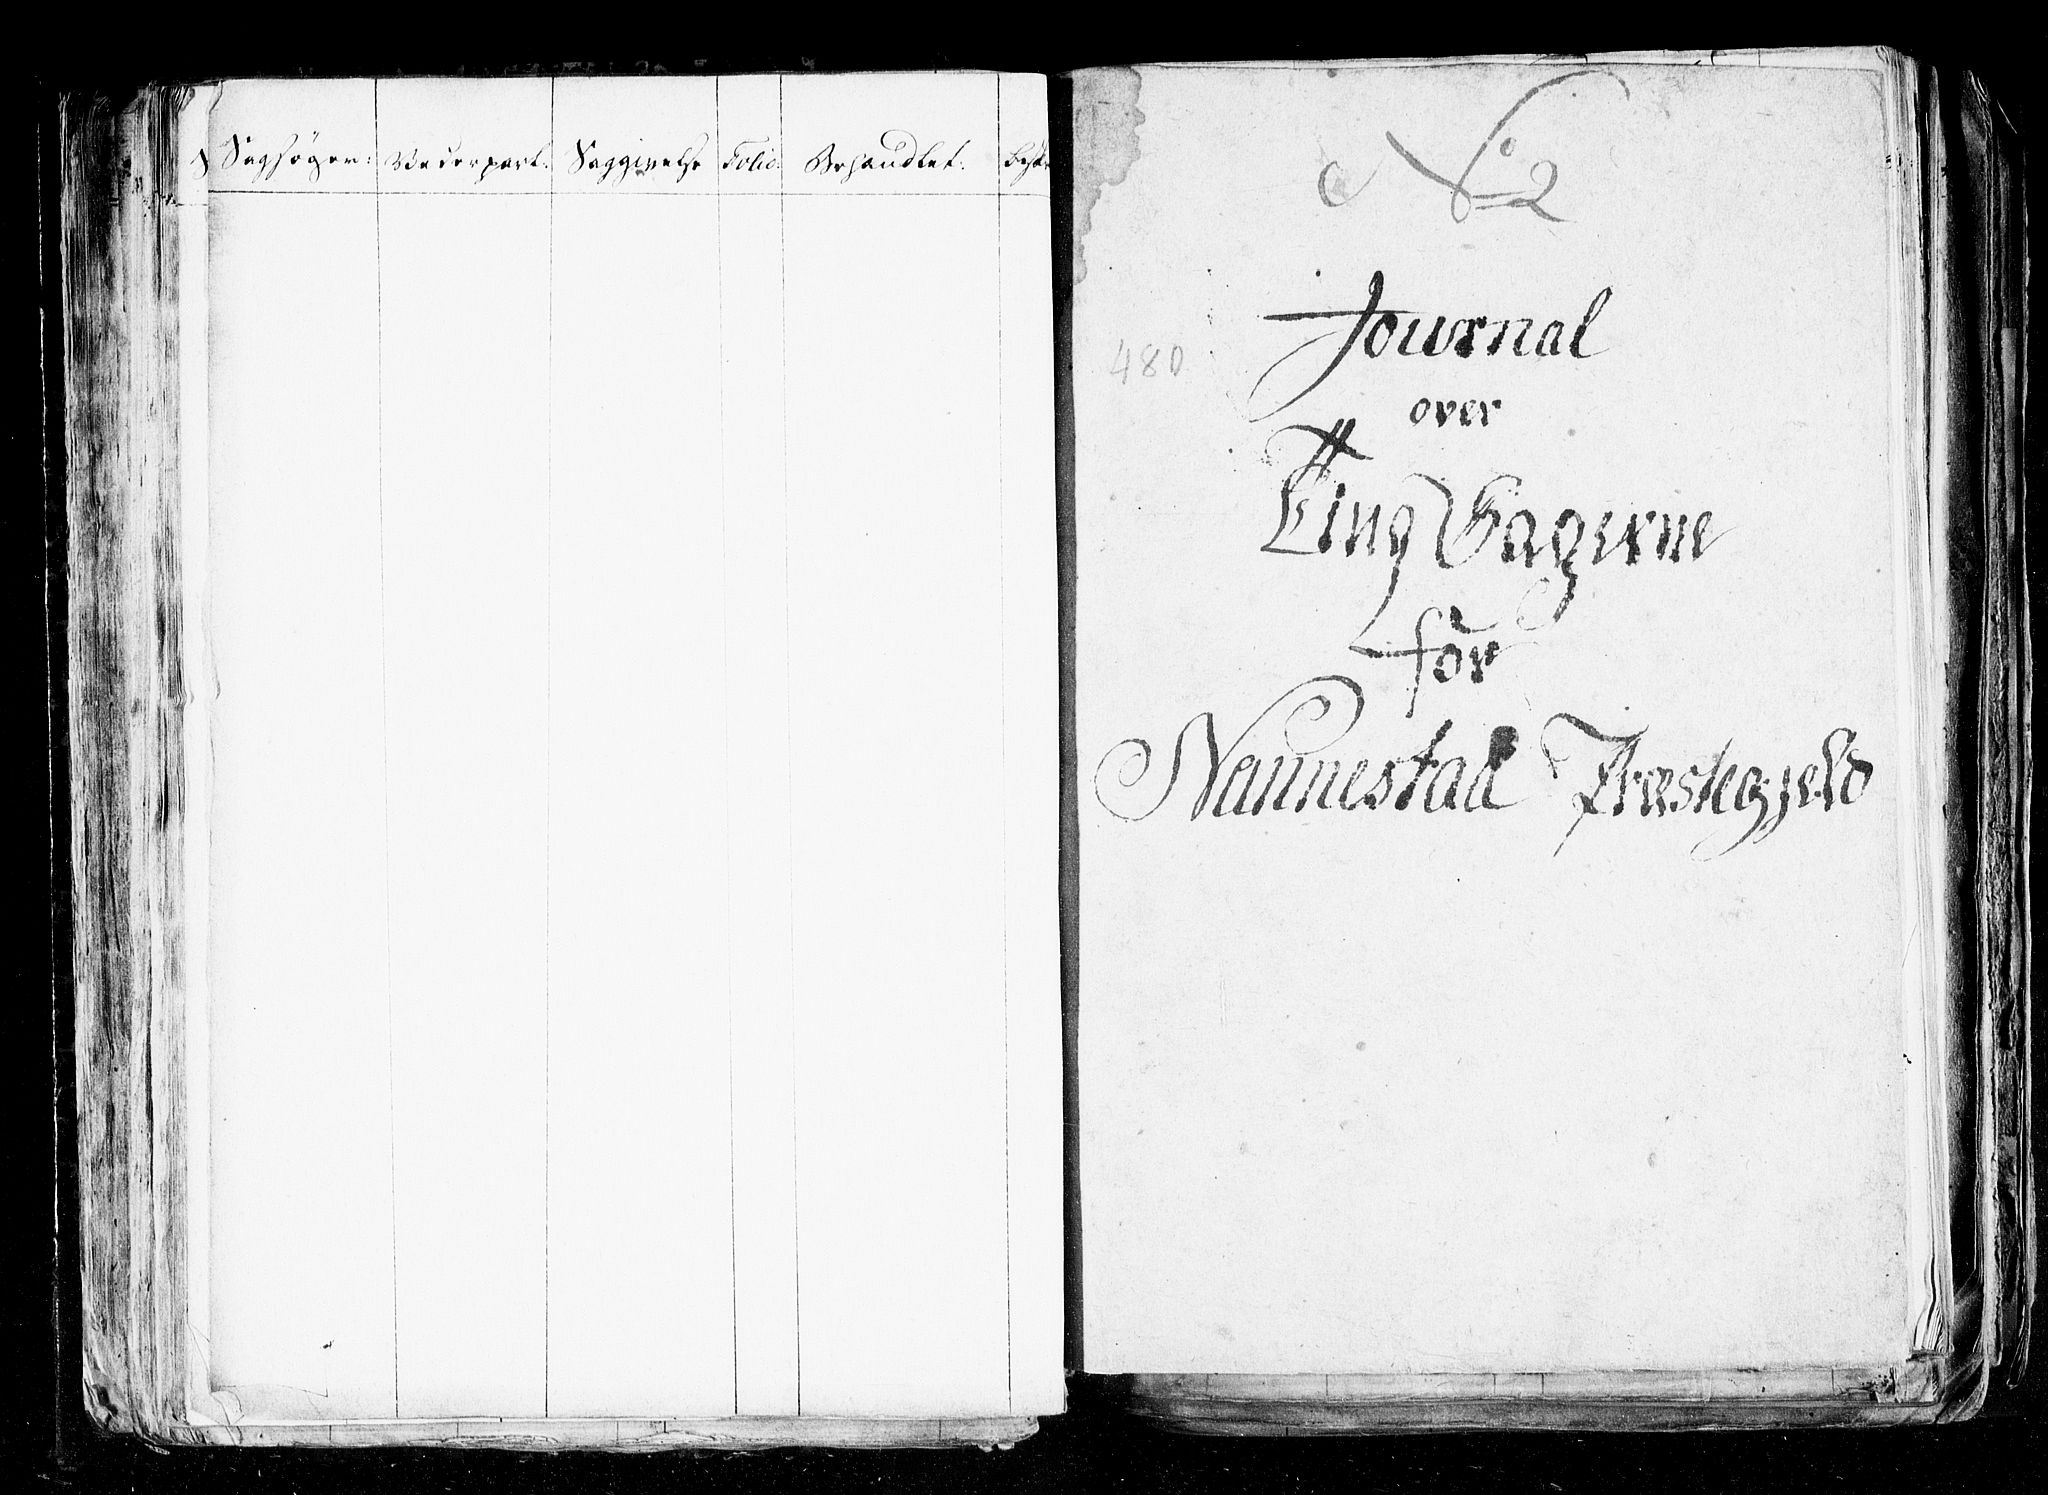 Sagsøger: Vederpart: Saggivelse Folio: Behandlet:
No 2
480
Journal
over
Ting Sagerne
for
Nannestad Præstegjeld